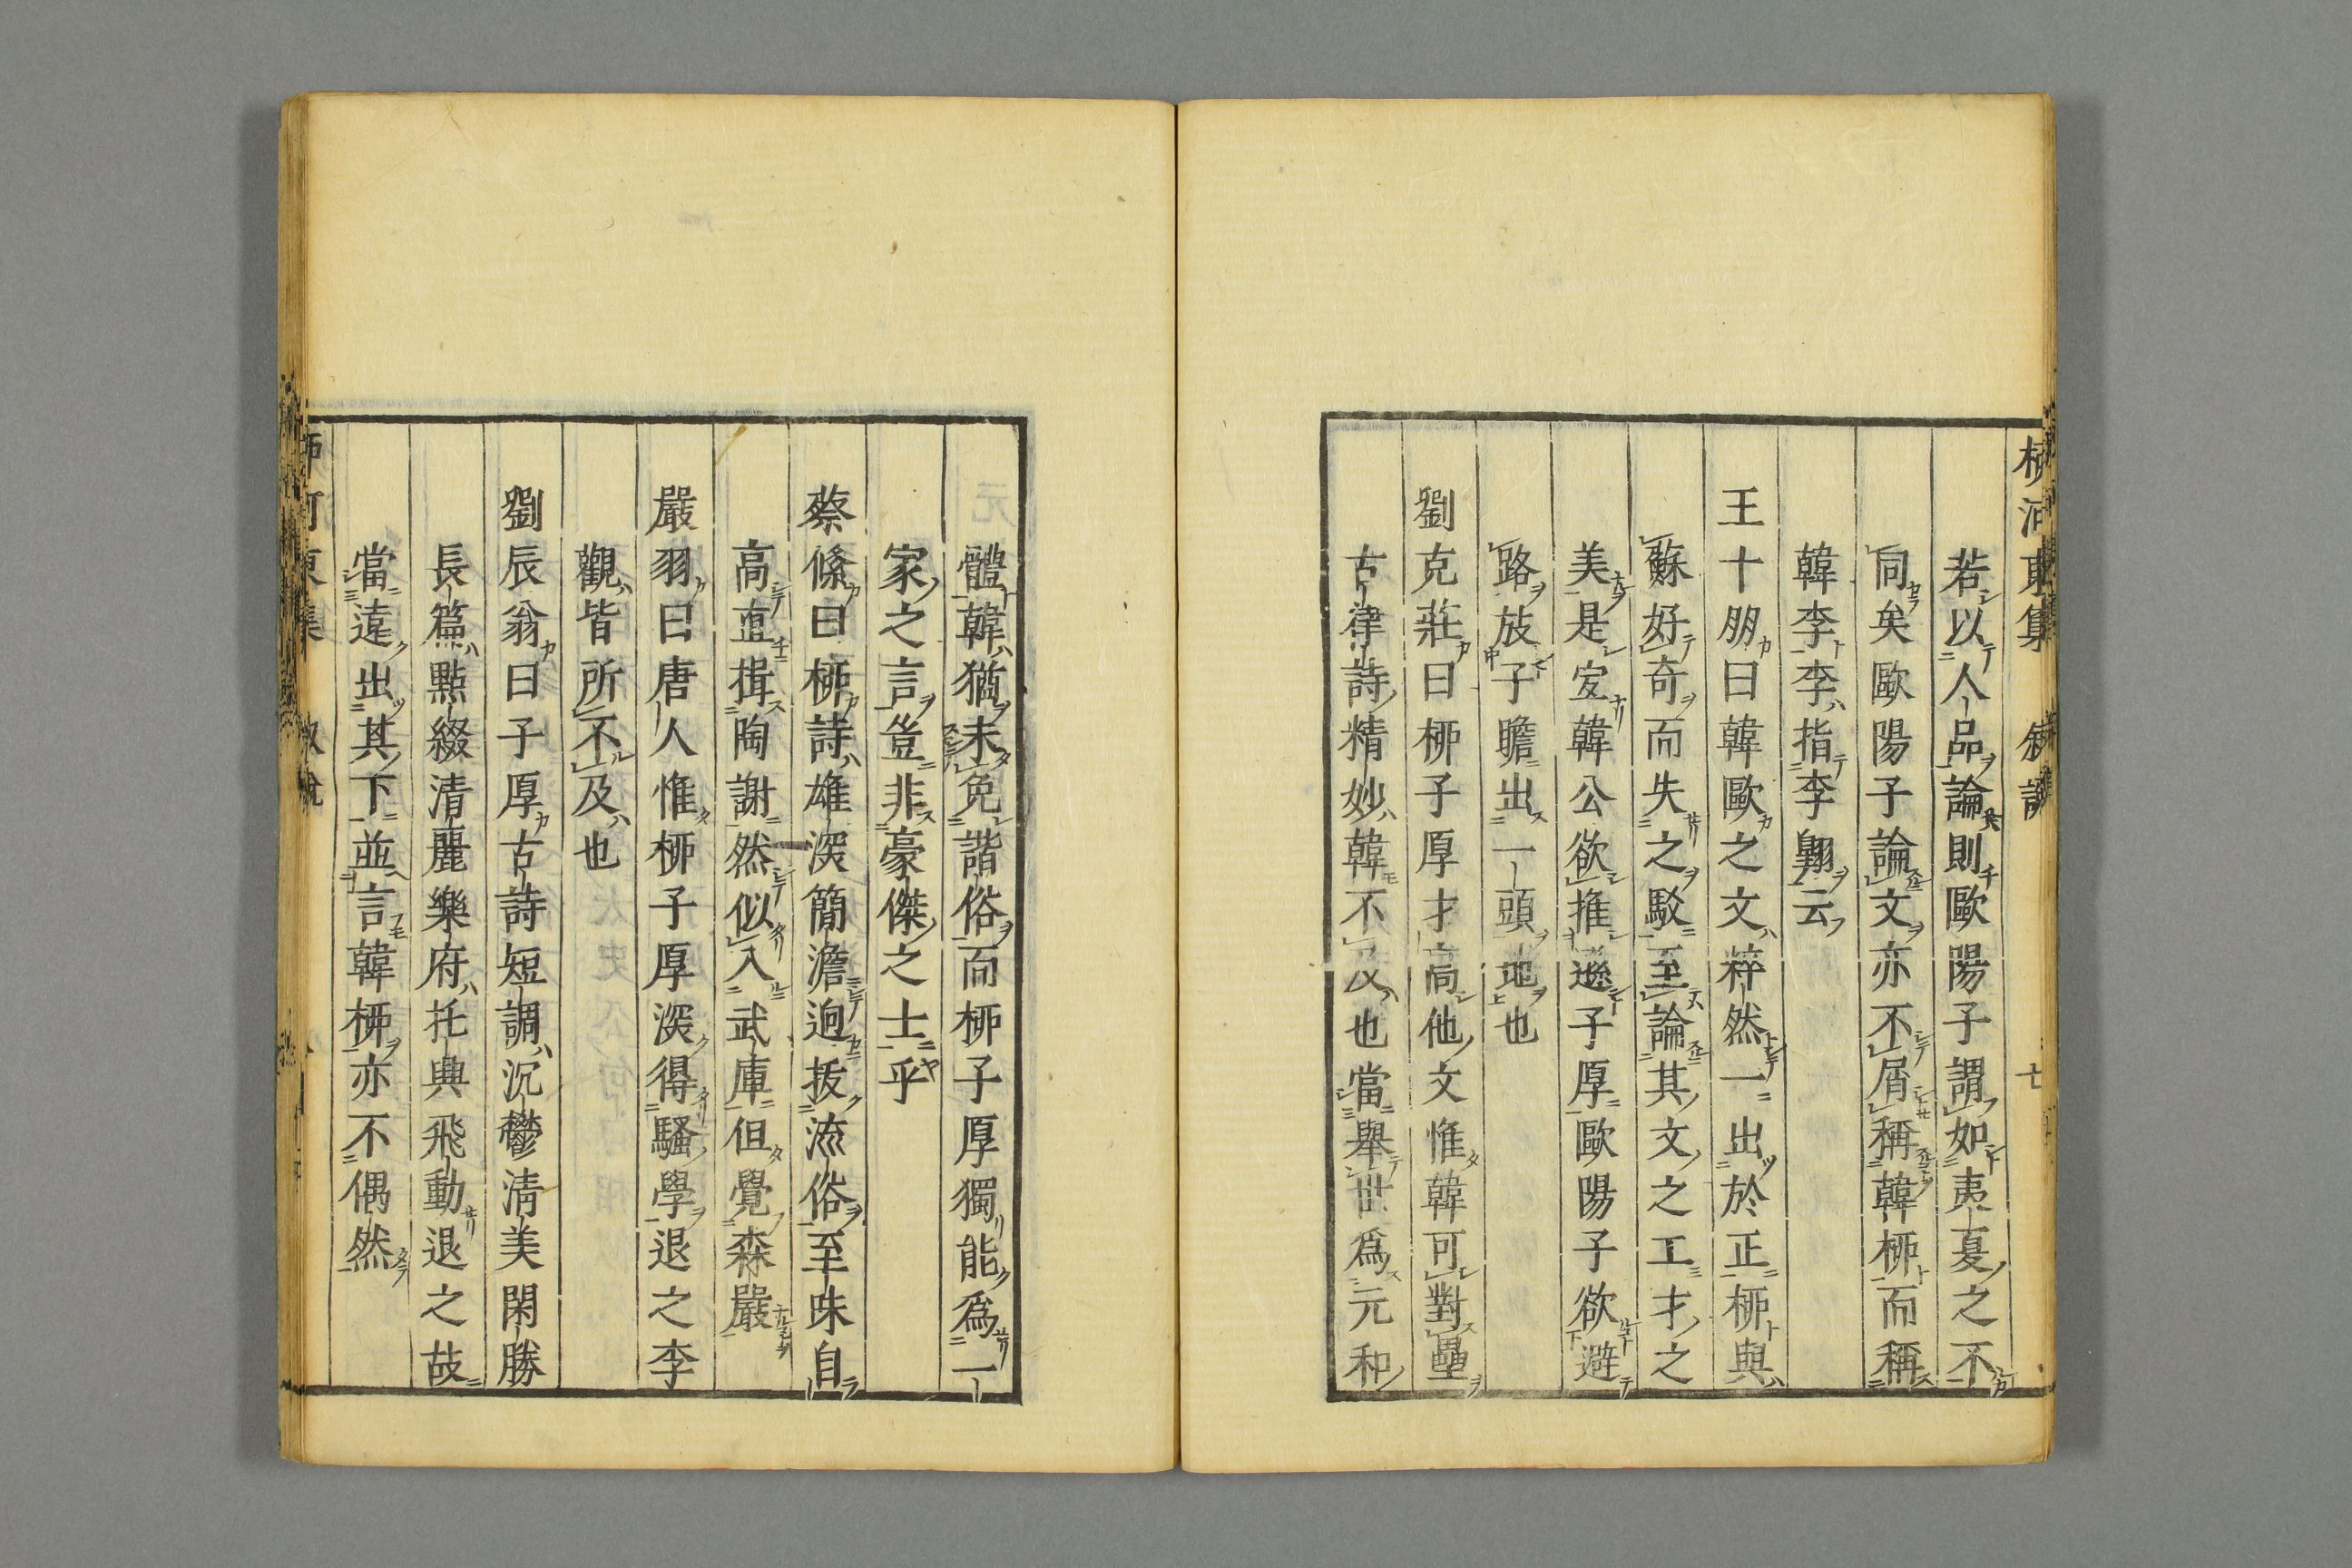 柳河東集 叙說 七
若以人品論則歐陽子謂如夷夏之不
同矣歐陽子論文亦不屑稱韓柳而稱
韓李李指李翺云
王十朋曰韓歐之文粹然一出於正柳與
蘇好奇而失之駁至論其文之工才之
美是宐韓公欲推遜子厚歐陽子欲避
路放子瞻出一頭地也
劉克莊曰柳子厚才高他文惟韓可對壘
古律詩精妙韓不及也當舉世爲元和
體韓猶未免諧俗而柳子厚獨能爲一
家之言豈非豪傑之士乎
蔡絛曰柳詩雄深簡澹逈拔流俗至味自
高直揖陶謝然似入武庫但覺森嚴
嚴羽曰唐人惟柳子厚深得騷學退之李
觀皆所不及也
劉辰翁曰子厚古詩短調沉鬱清美閑勝
長篇點綴清麗樂府托興飛動退之故
當遠出其下並言韓柳亦不偶然